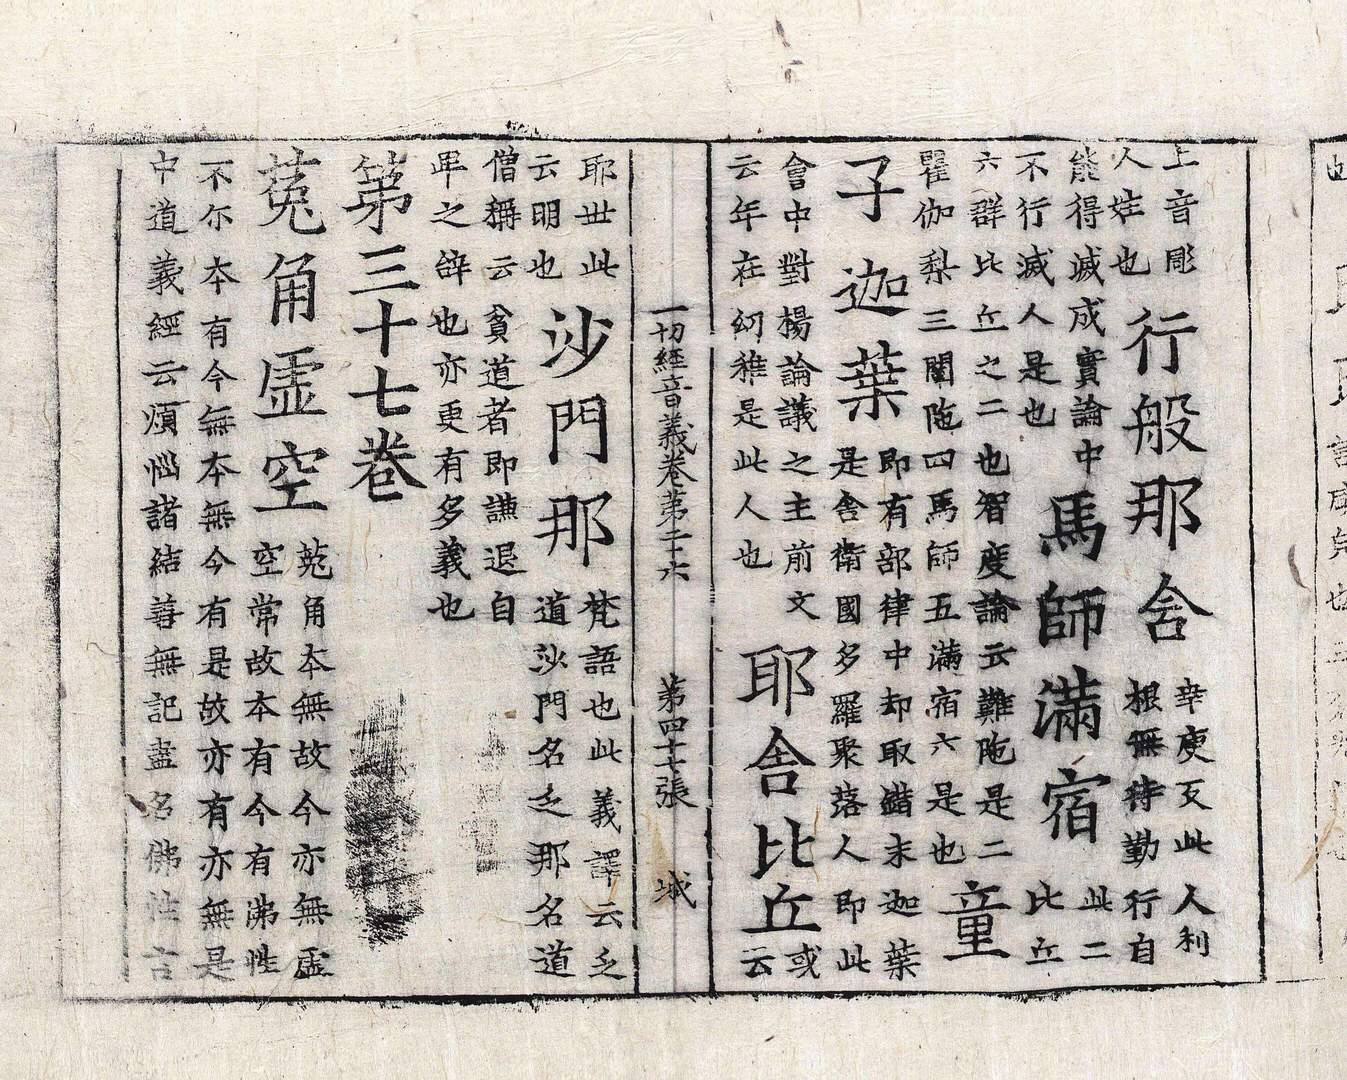 上音彫
人姓也
行般那含
辛庾反此人利
根無待勤行自
能得滅成實論中
不行滅人是也
馬師滿宿
此二
比丘
六群比丘之二也智度論云難陁是二
瞿伽梨三闡陁四馬師五滿宿六是也
童
子迦葉
即有部律中却取末迦葉
是舍衛國多羅聚落人即此
會中對楊論議之主前文
云年在幼稚是此人也
耶舍比丘
或
云
一切經音義卷第二十六 第四十七張 城
耶世此
云明也
沙門那
梵語也此義譯云乏
道沙門名乏那名道
僧稱云貧道者即謙退自
卑之辝也亦更有多義也
第三十七卷
菟角虛空
菟角本無故今亦無虛
空常故本有今有沸性
不尓本有今無本無今有是故亦有亦無是
中道義經云煩惱諸結善無記盡名佛性言